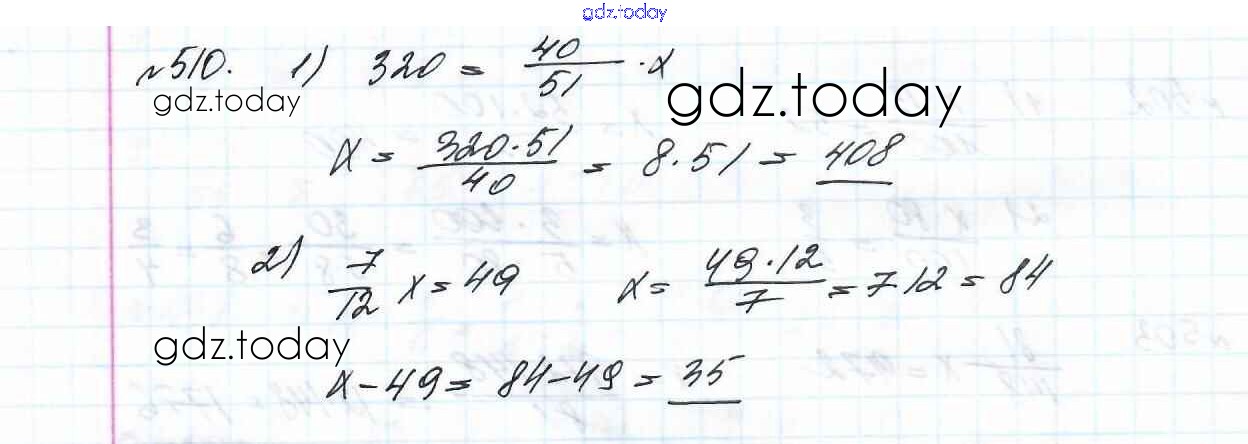 gdz.today
№510. 1) 320 = 40/51 · x
gdz.today gdz.today
x = 320·51/40 = 8·51 = 408
2) 7/12 x = 49 x = 49·12/7 = 7·12 = 84
gdz.today
x - 49 = 84 - 49 = 35